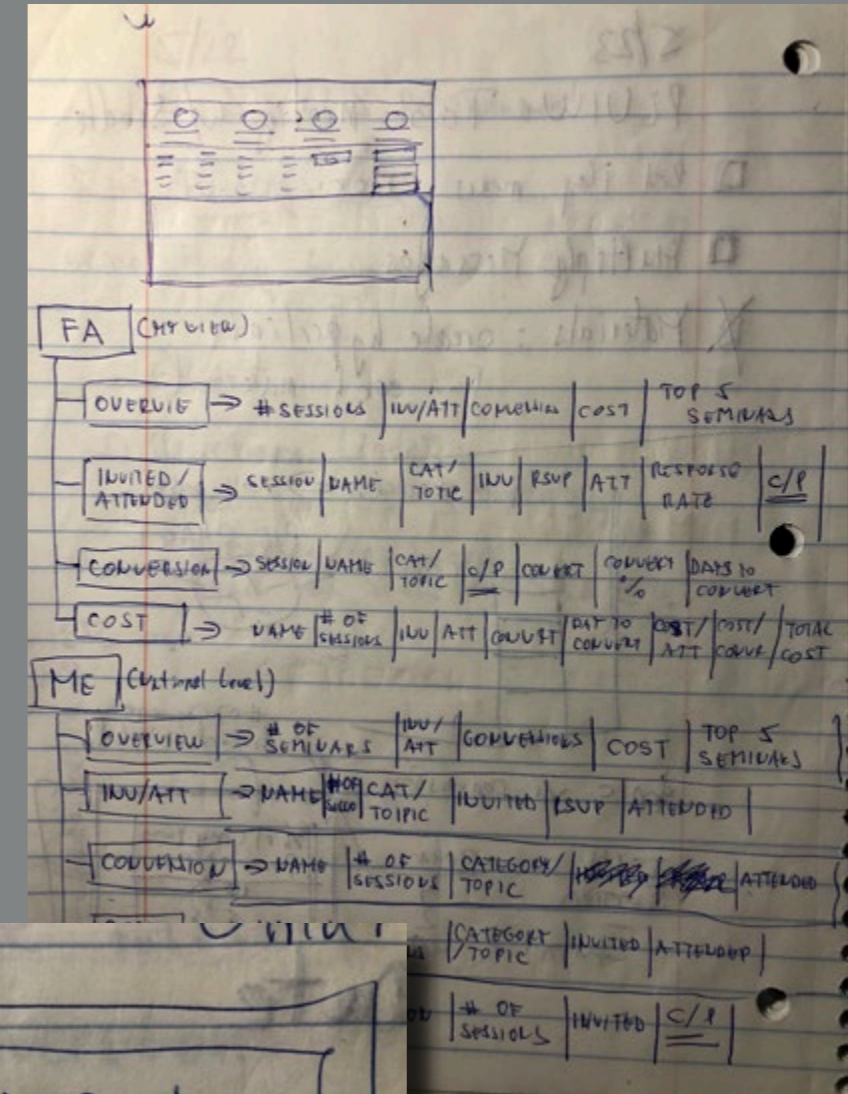 FA (MY VIEW)
OVERVIE → # SESSIONS | INV/ATT | | COST | TOP 5 SEMINARS
INVITED / ATTENDED → SESSION | NAME | CAT/ TOTIC | INV | RSVP | ATT | RESPONSE RATE | C/P
CONVERSION → SESSION | NAME | CAT/ TOPIC | C/P | CONVERT | CONVERT % | DAYS TO CONVERT
COST → NAME | # OF SESSIONS | INV | ATT | CONVERT | DAY TO CONVERT | COST/ ATT | COST/ CONVR | TOTAL COST
ME (National Level)
OVERVIEW → # OF SEMINARS | INV/ ATT | CONVERSIONS | COST | TOP 5 SEMINARS
INV/ATT → NAME | # OF | CAT/ TOIPIC | INVITED | RSVP | ATTENDED |
CONVERSION → NAME | # OF SESSIONS | CATEGORY/ TOPIC | ATTENDED
| CATEGORY /TOPIC | INVITED | ATTENDED |
| # OF SESSIONS | INVITED | C/P |